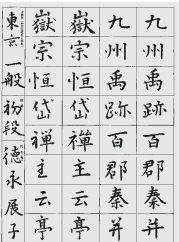 九州禹跡百郡秦并
九州禹跡百郡秦并
嶽宗恒岱禪主云亭
嶽宗恒岱禪主云亭
東京一般初段徳永展子